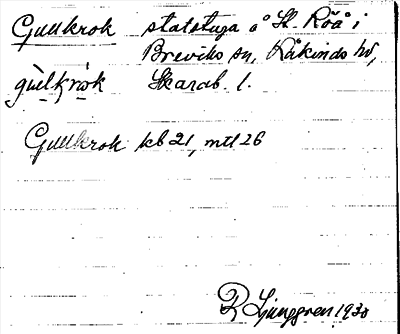 Gullkrok statstuga å St. Röå i
Breviks sn, Kåkinds hd,
gùlkrὼk Skarab. l.
Gullkrok kb 21, mtl 26
R Ljunggren 1930